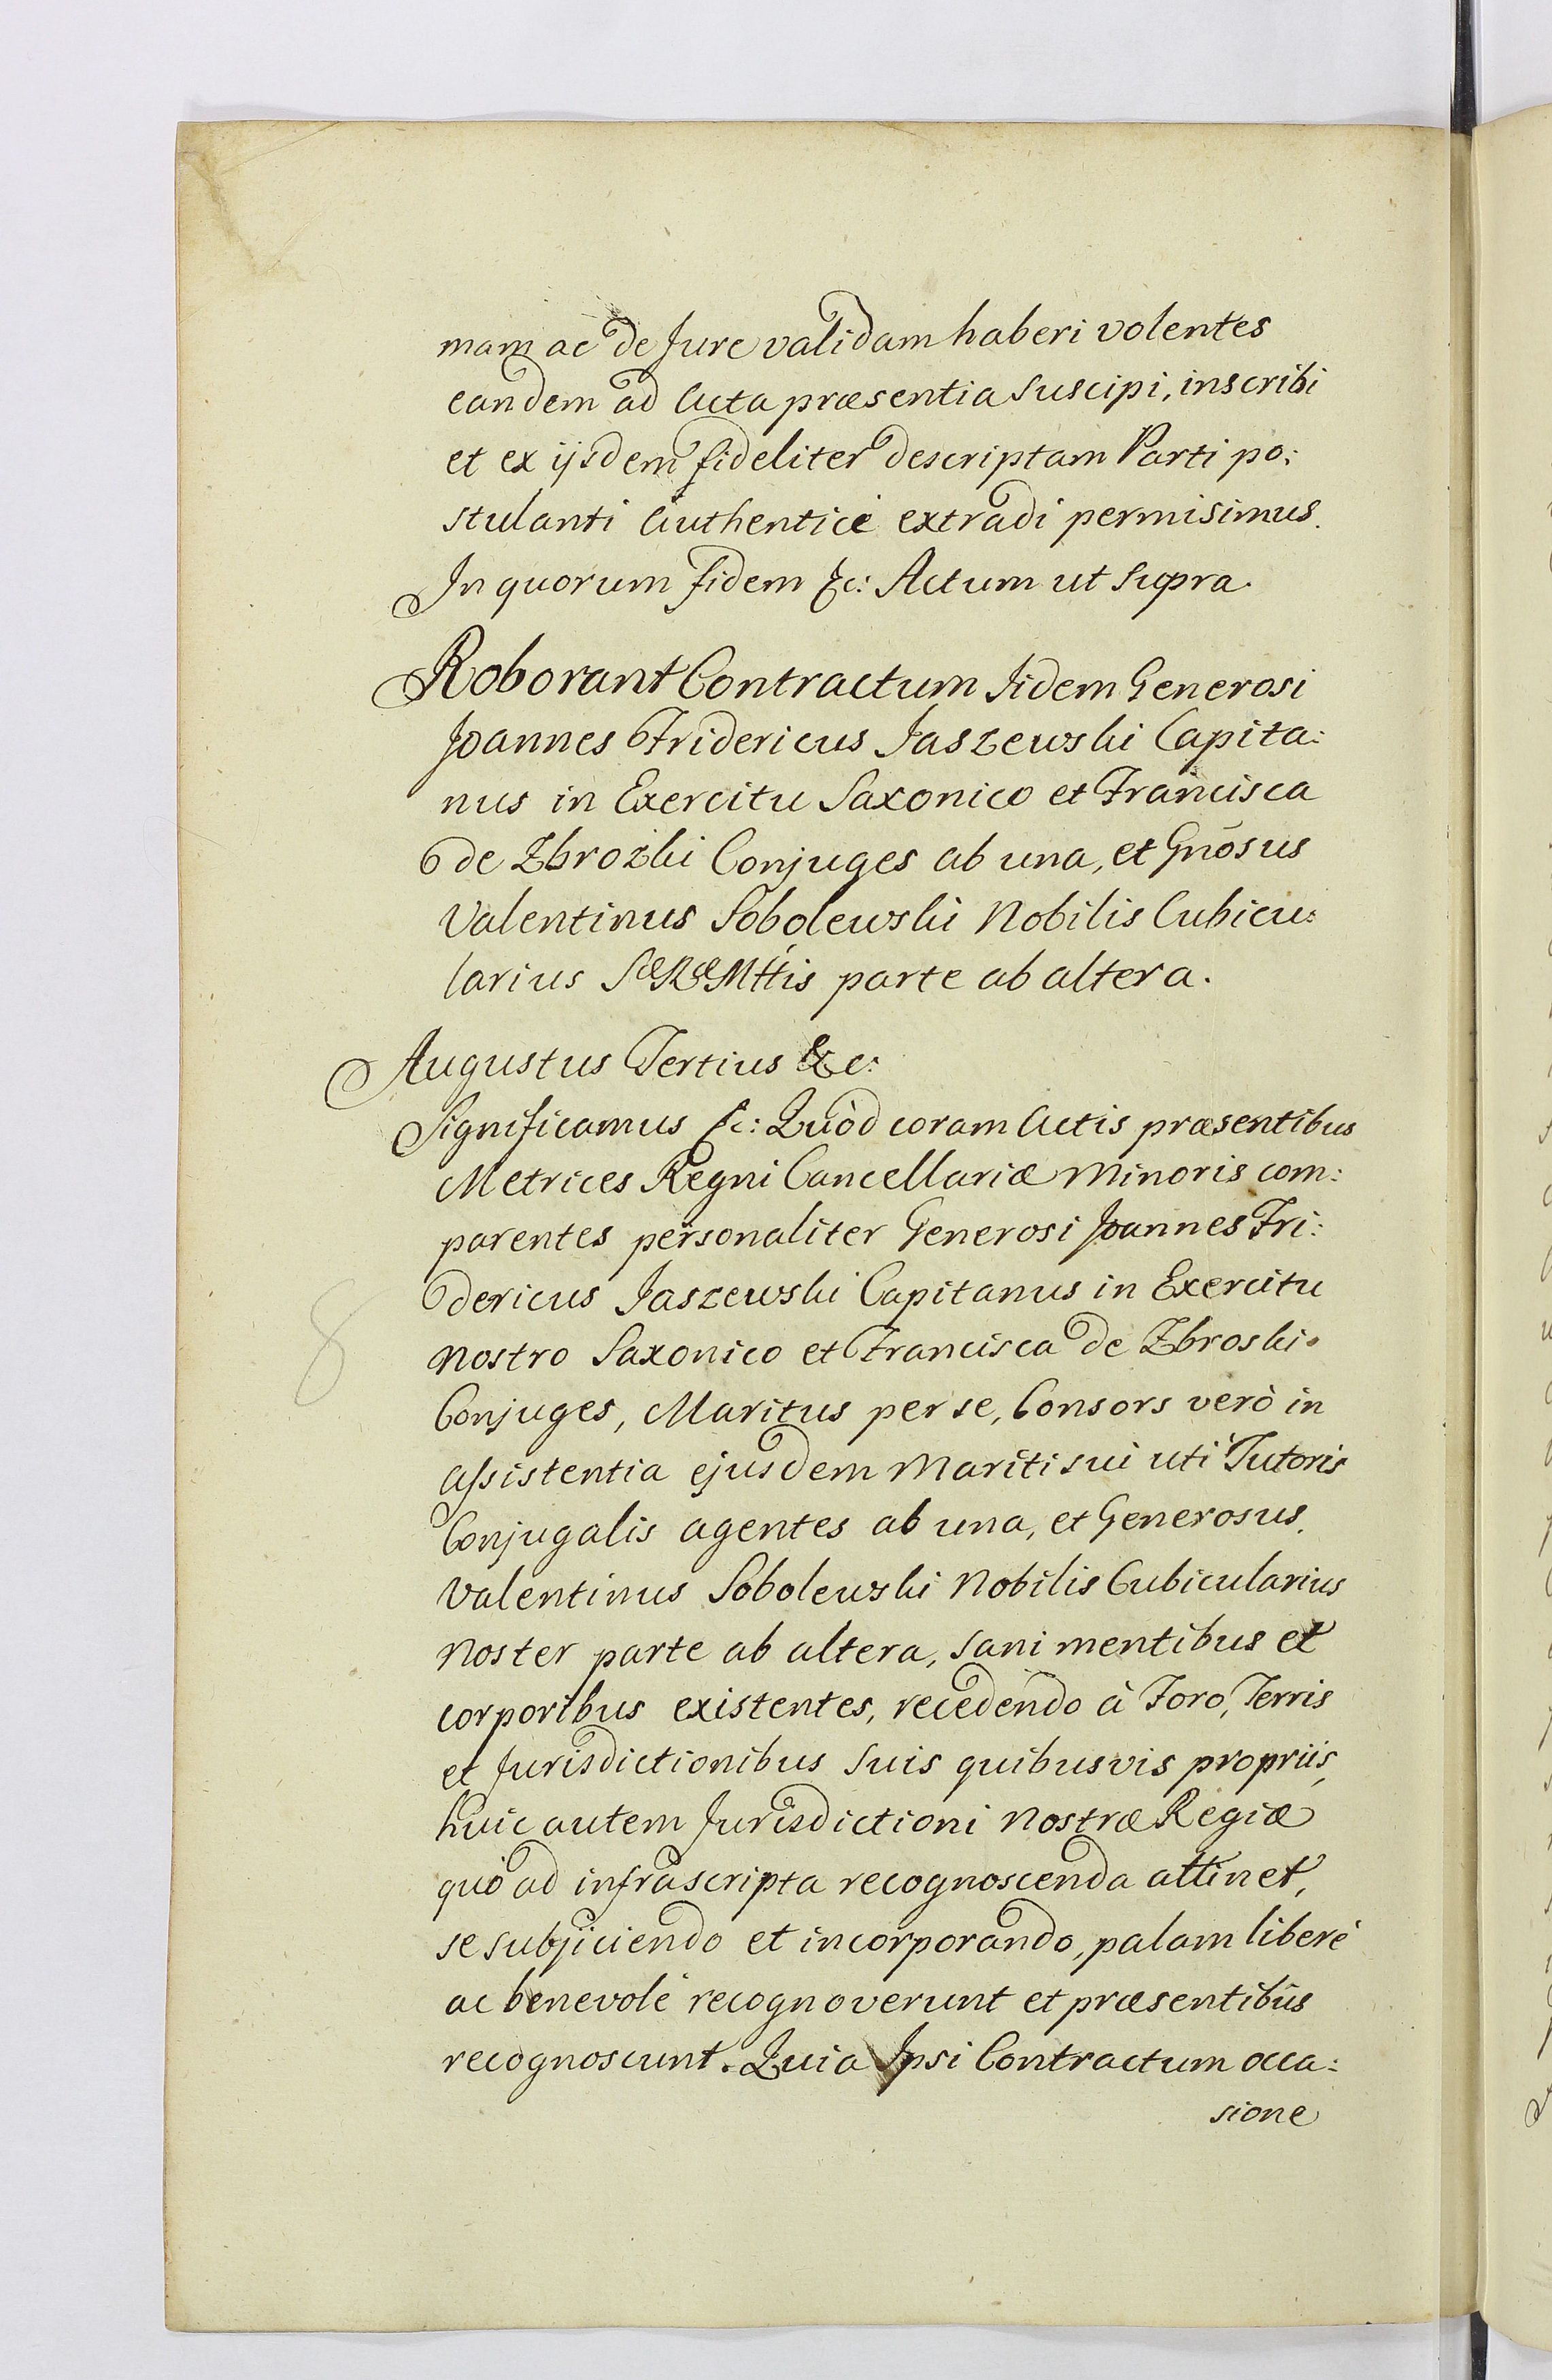 mam ac de Jure validam haberi volentes
eandem ad Acta præsentia suscipi, inscribi
et ex ijsdem fideliter descriptam Parti po:
stulanti Authenticè extradi permisimus.
In quorum fidem &c: Actum ut supra.
Roborant Contractum Iidem Generosi
Joannes Fridericus Jaszewski Capita:
nus in Exercitu Saxonico et Francisca
de Zbrozki Conjuges ab una, et Gnōsus
Valentinus Sobolewski Nobilis Cubicu:
larius SæRæMttis parte ab altera.
Augustus Tertius &c:
Significamus &c: Quòd coram Actis præsentibus
Metrices Regni Cancellariæ Minoris com:
parentes personaliter Generosi Joannes Fri:
dericus Jaszewski Capitanus in Exercitu
Nostro Saxonico et Francisca de Zbroski
Conjuges, Maritus per se, Consors verò in
assistentia ejusdem Mariti sui uti Tutoris
Conjugalis agentes ab una, et Generosus
Valentinus Sobolewski Nobilis Cubicularius
Noster parte ab altera, sani mentibus et
corporibus existentes, recedendo à Foro, Terris
et Jurisdictionibus suis quibusvis propriis,
huic autem Jurisdictioni Nostræ Regiæ
8
quò ad infrascripta recognoscenda attinet,
se subjiciendo et incorporando, palam liberè
ac benevolè recognoverunt et præsentibus
recognoscunt. Quia Ipsi Contractum occa:
sione